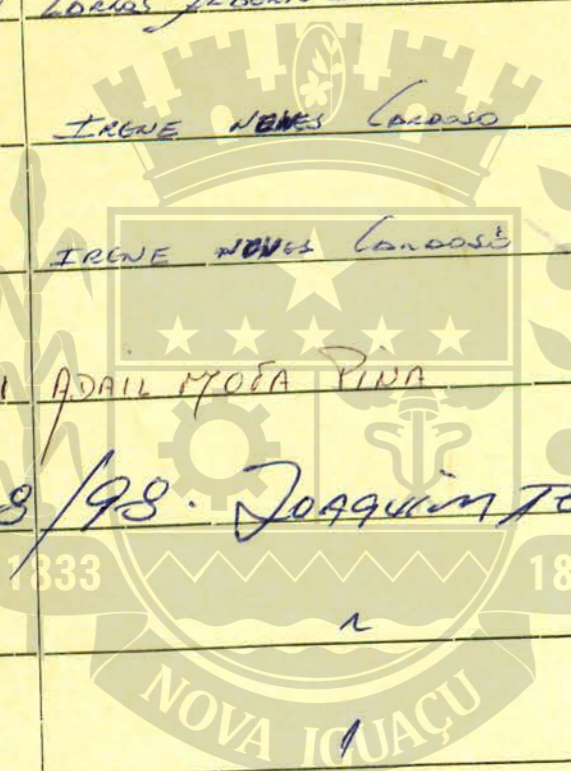 IRENE NEVES CARDOSO
IRENE NEVES CARDOSO
ADAIL MOTA PINA
8/98. JOAQUIM
1833
NOVA IGUAÇU